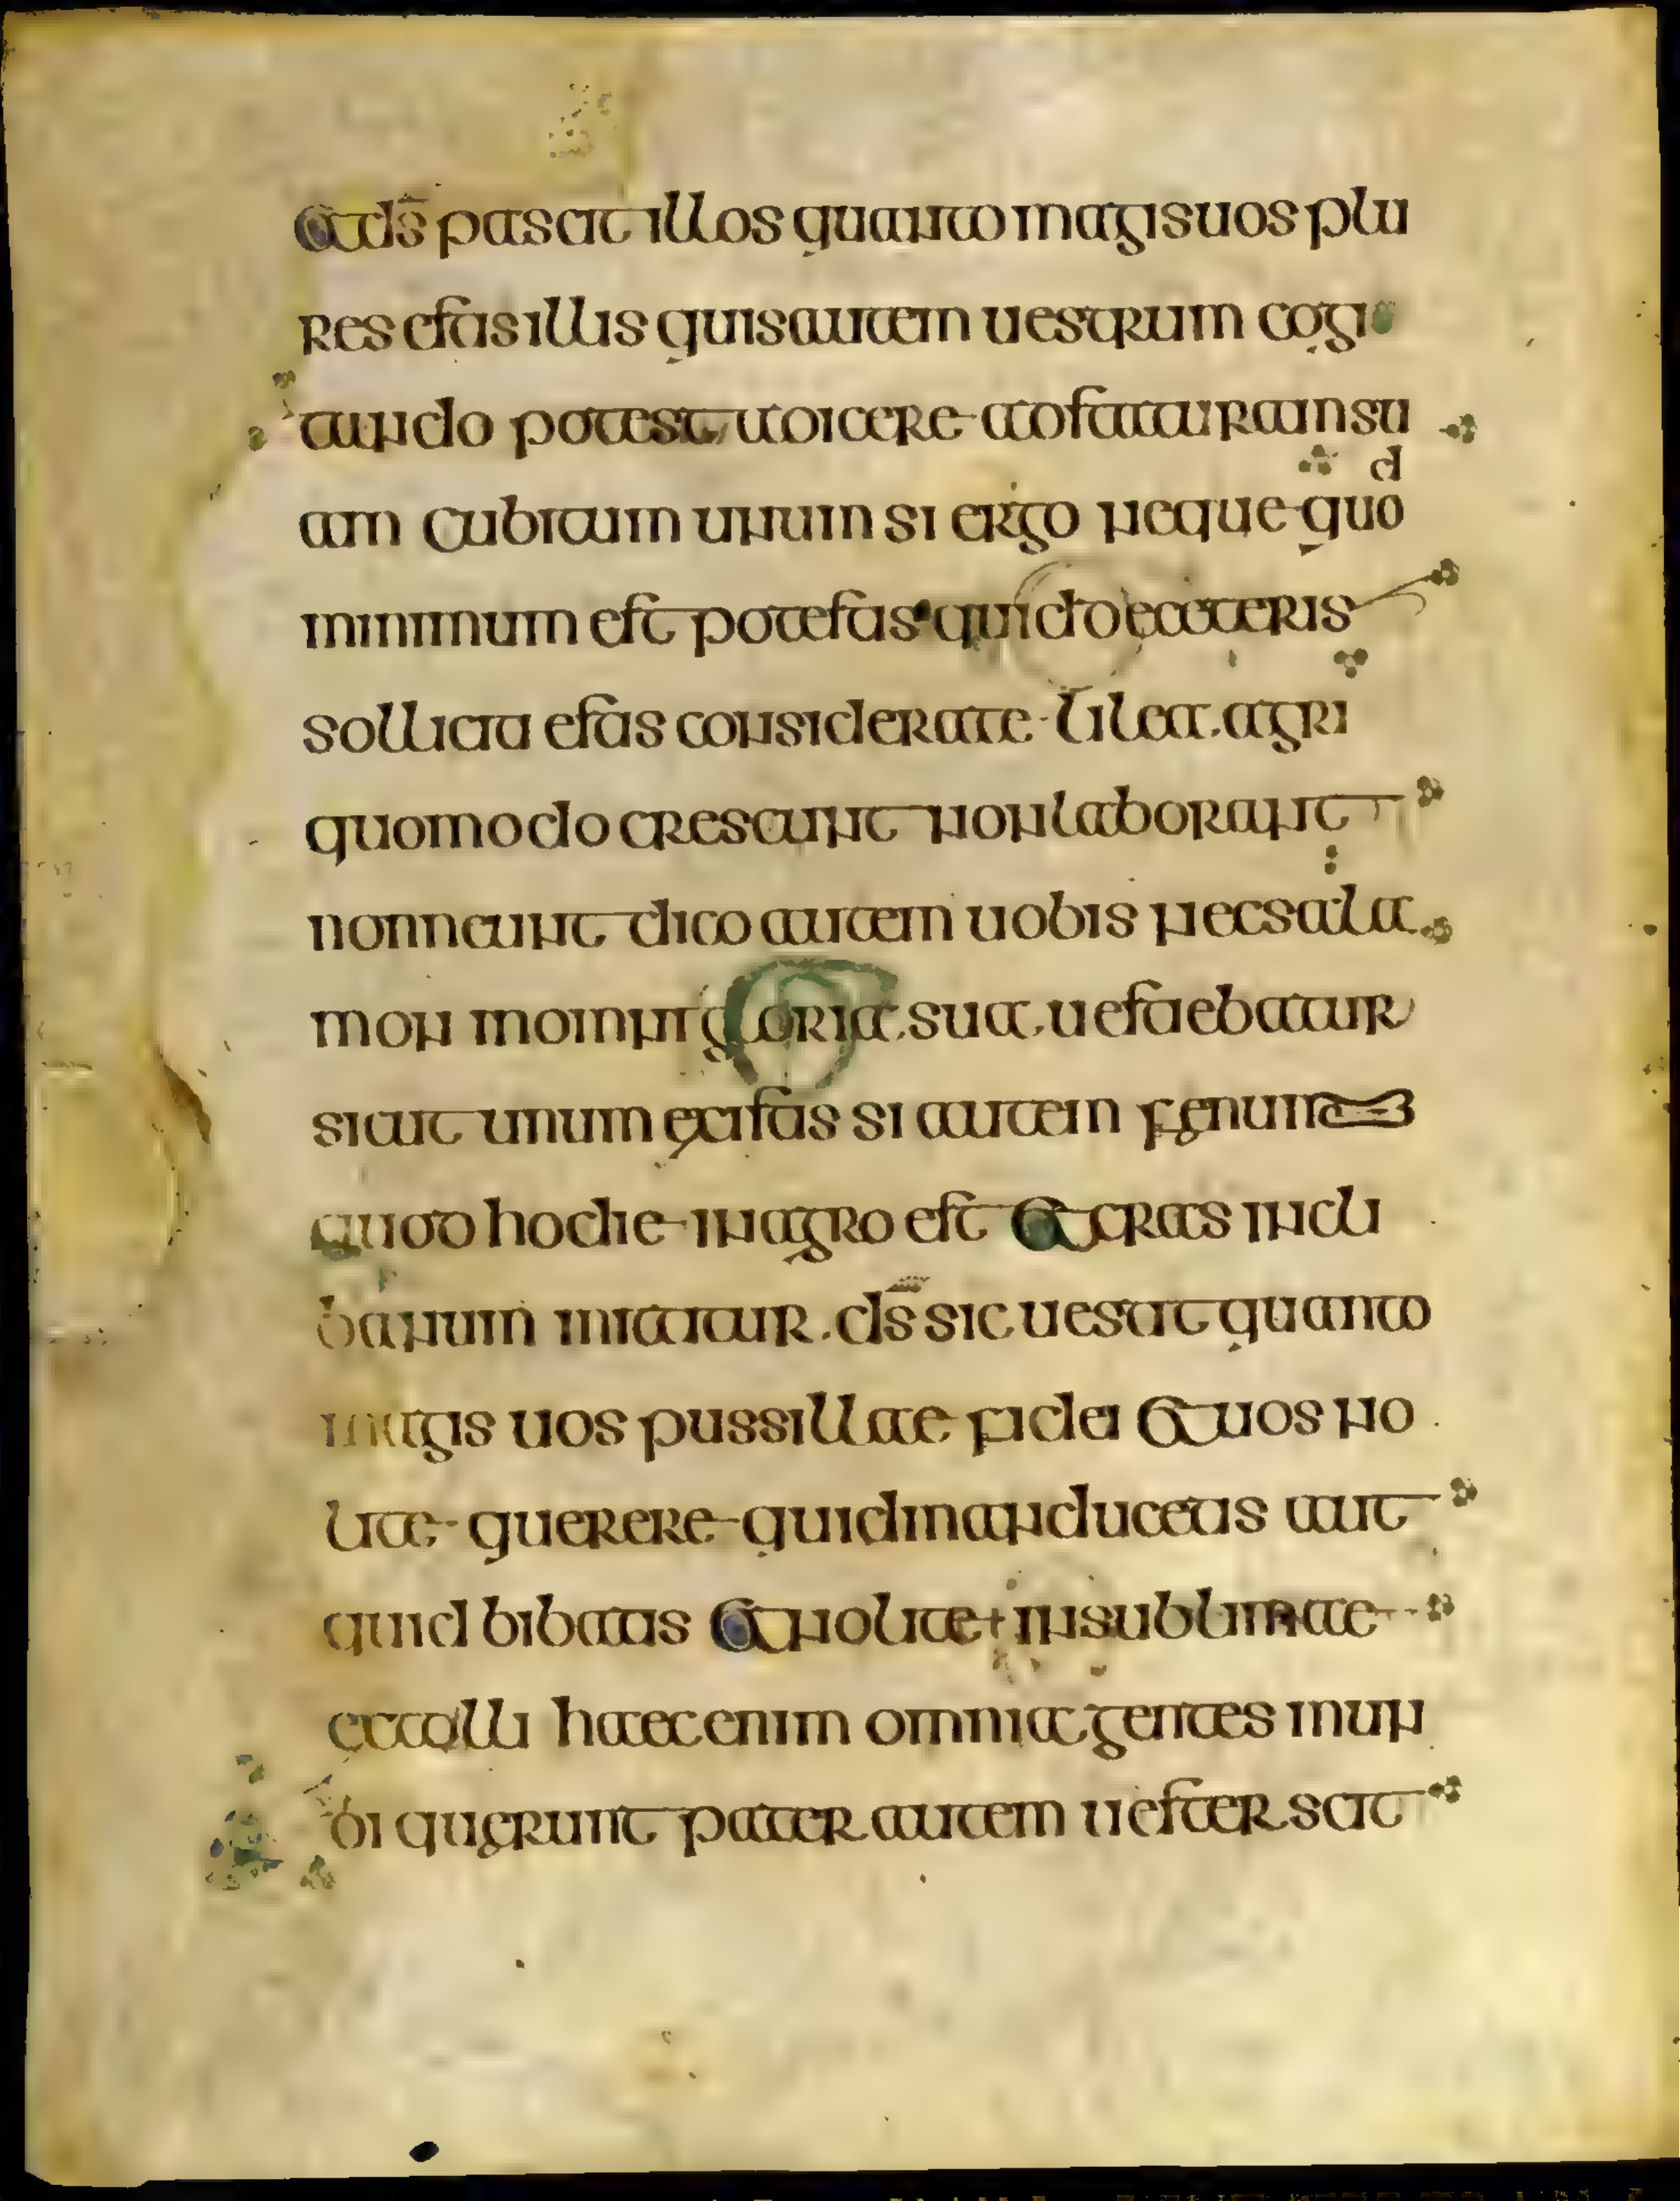 et ds̄ pascit illos quanto magis uos plu
res estis illis quis autem uestrum cogi
tando potest adicere ad staturam su
am cubitum unum si ergo neque quod
minimum est potestis quid de ceteris
solliciti estis considerate lilea agri
quomodo crescunt non laborant
non neunt dico autem uobis nec sala
mon in omni gloria sua uestiebatur
sicut unum ex istis si autem fenum
quod hodie in agro est et cras in cli
banum mittitur ds̄ sic uestit quanto
magis uos pussillae fidei et uos no
lite querere quid manducetis aut
quid bibatis et nolite in sublimae
extolli haec enim omnia gentes mun
di querunt pater autem uester scit